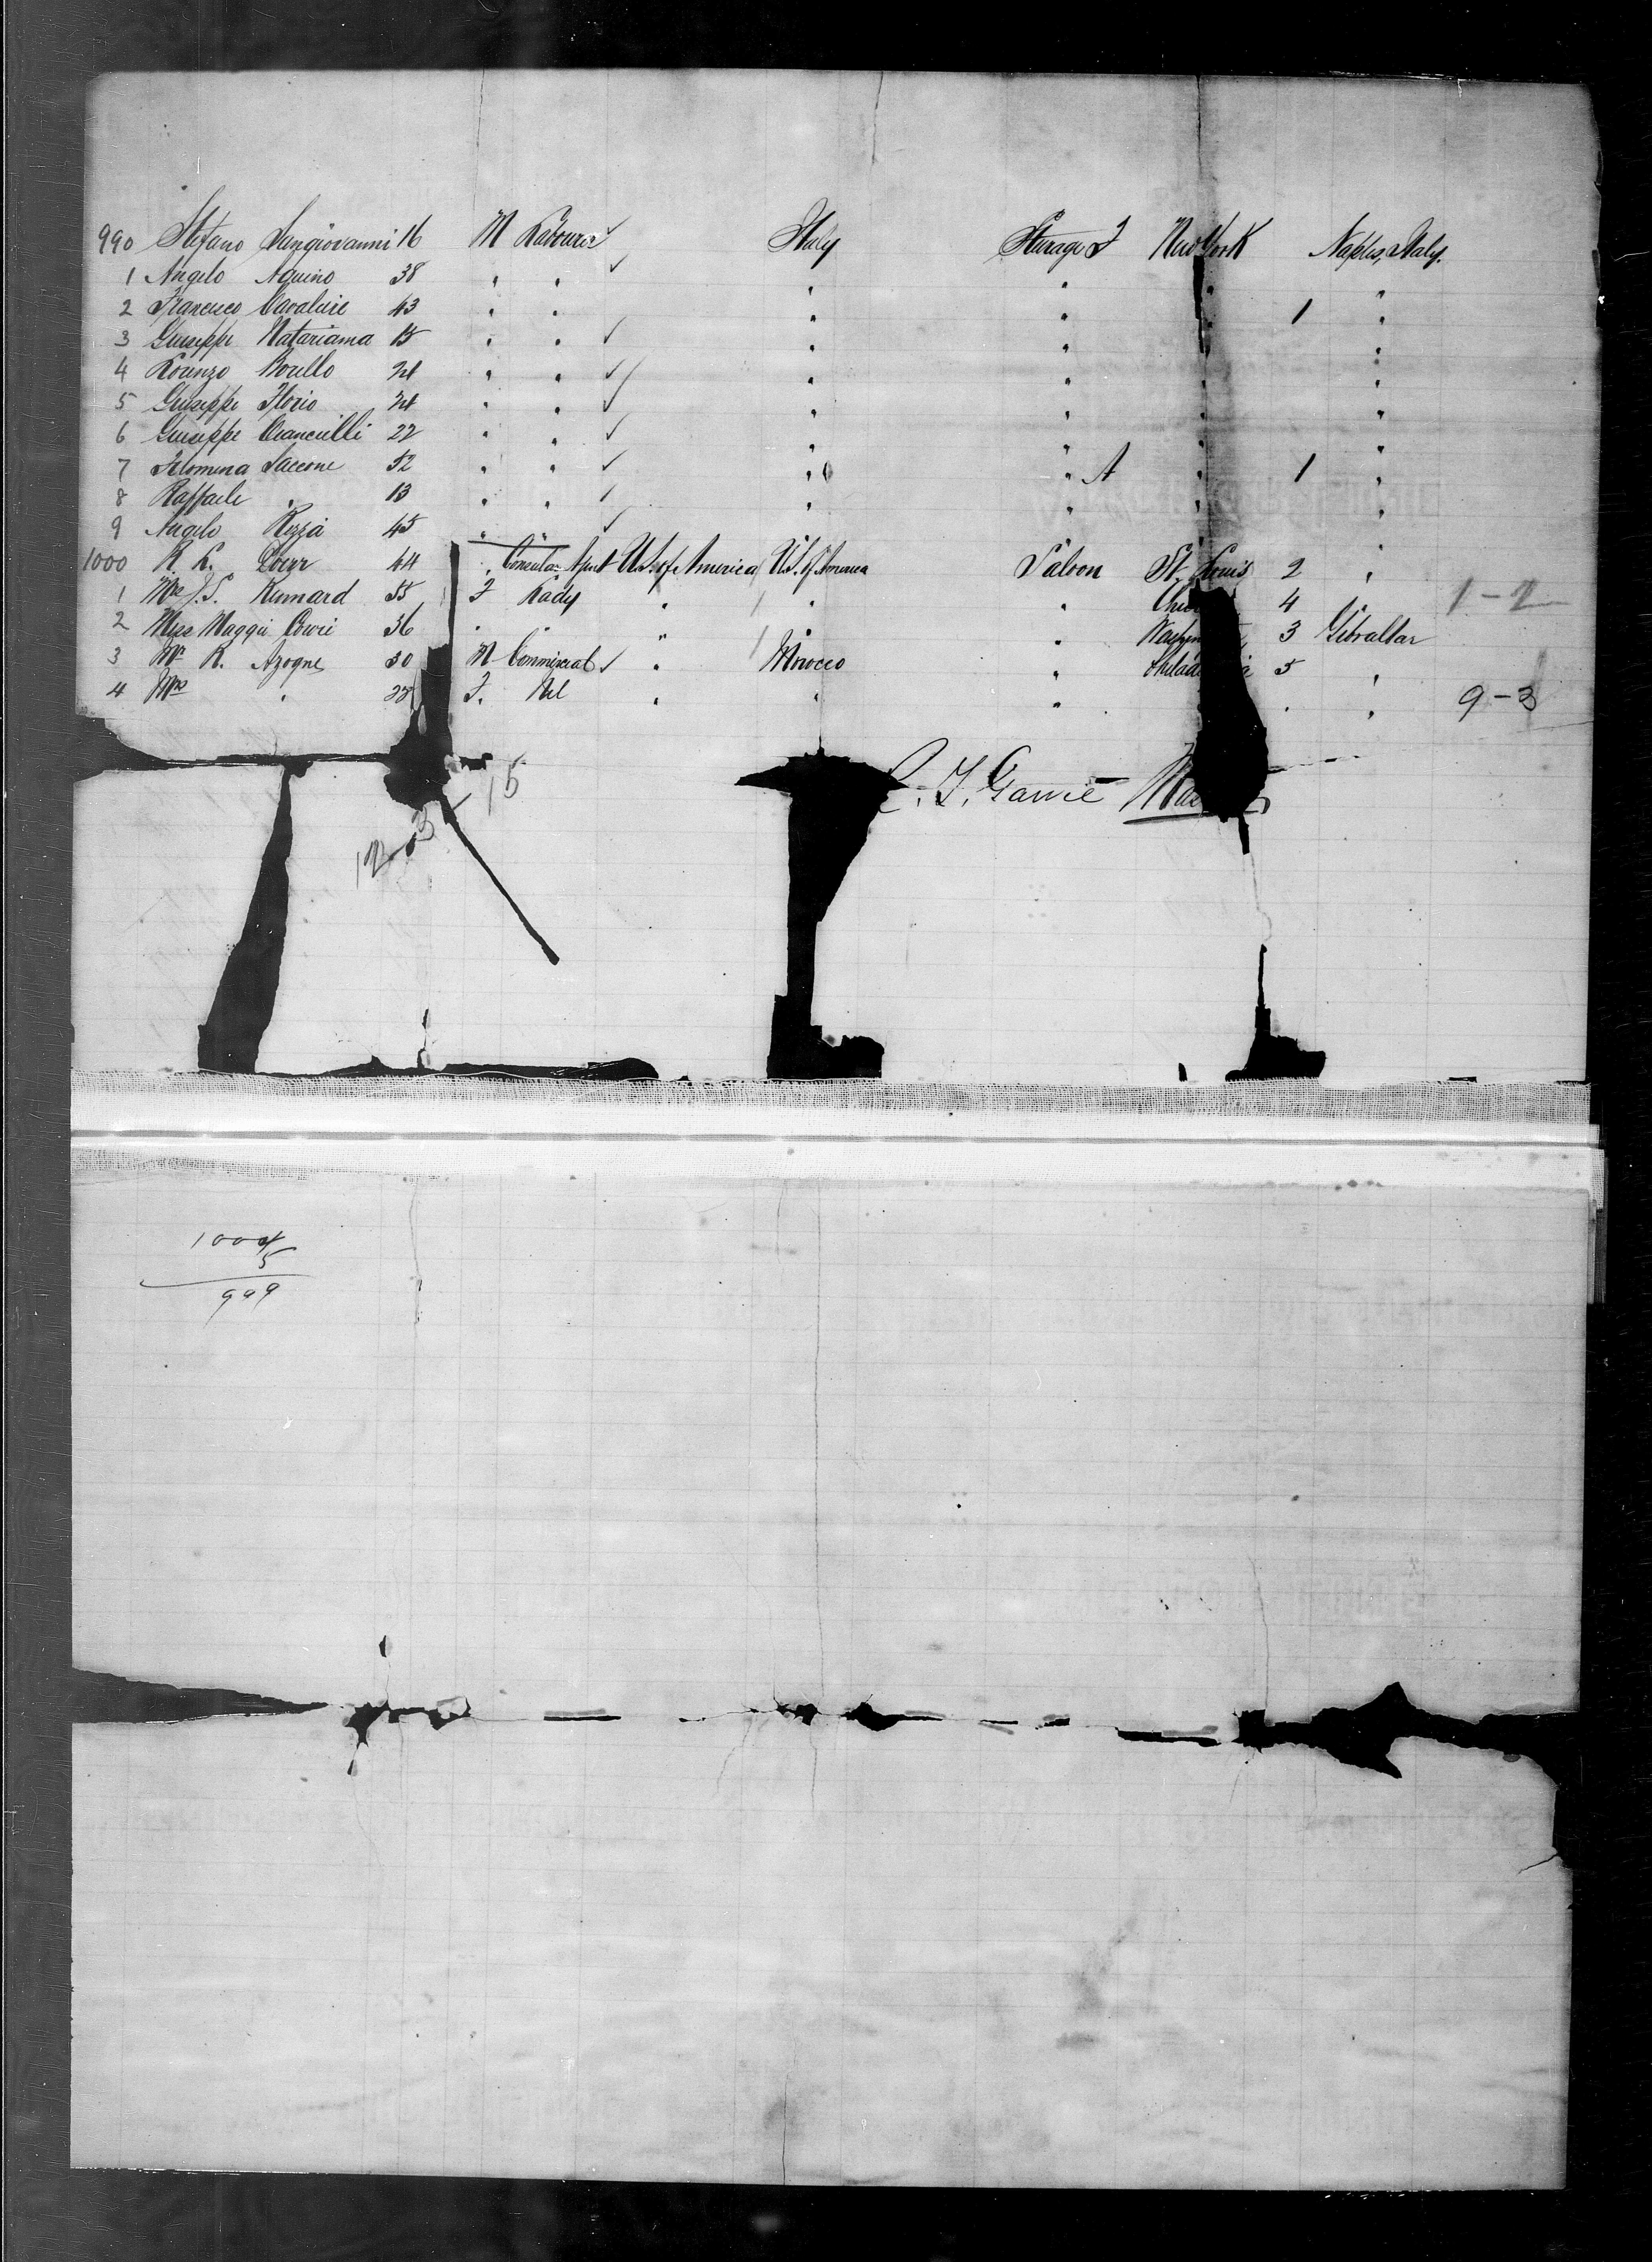 990 Stefano Sangiovanni 16 M Labourer ✓ Italy Steerage F New York Naples, Italy.
1 Angelo Aquino 38 " " ✓ " " " "
2 Francesco Cavaliere 43 " " " " " 1 "
3 Giuseppe 15 " " ✓ " " " "
4 Lorenzo Borello 24 " " ✓ " " " "
5 Giuseppe Florio 24 " " ✓ " " " "
6 Giuseppe Ciancuilli 22 " " ✓ " " " "
7 Filomena Saccone 52 " " ✓ " " A " 1 "
8 Raffaele " 13 " " ✓ " " " "
9 Angelo Rizza 45 " " ✓
1000 R. L. 44 " Consular Agent U.S. of America U.S. of America Saloon St. Louis 2 "
1 Mrs J.S. Kennard 55 F Lady " " " 4 1-2
2 Miss Maggie 36 " " " " 3 Gibraltar
3 Mr R. Azogue 30 M Commercial ✓ " Morocco " 5 "
4 Mrs " 28 F. Nil " " " " " 9-3
15
12-3
F. Garvie
1004
5
999